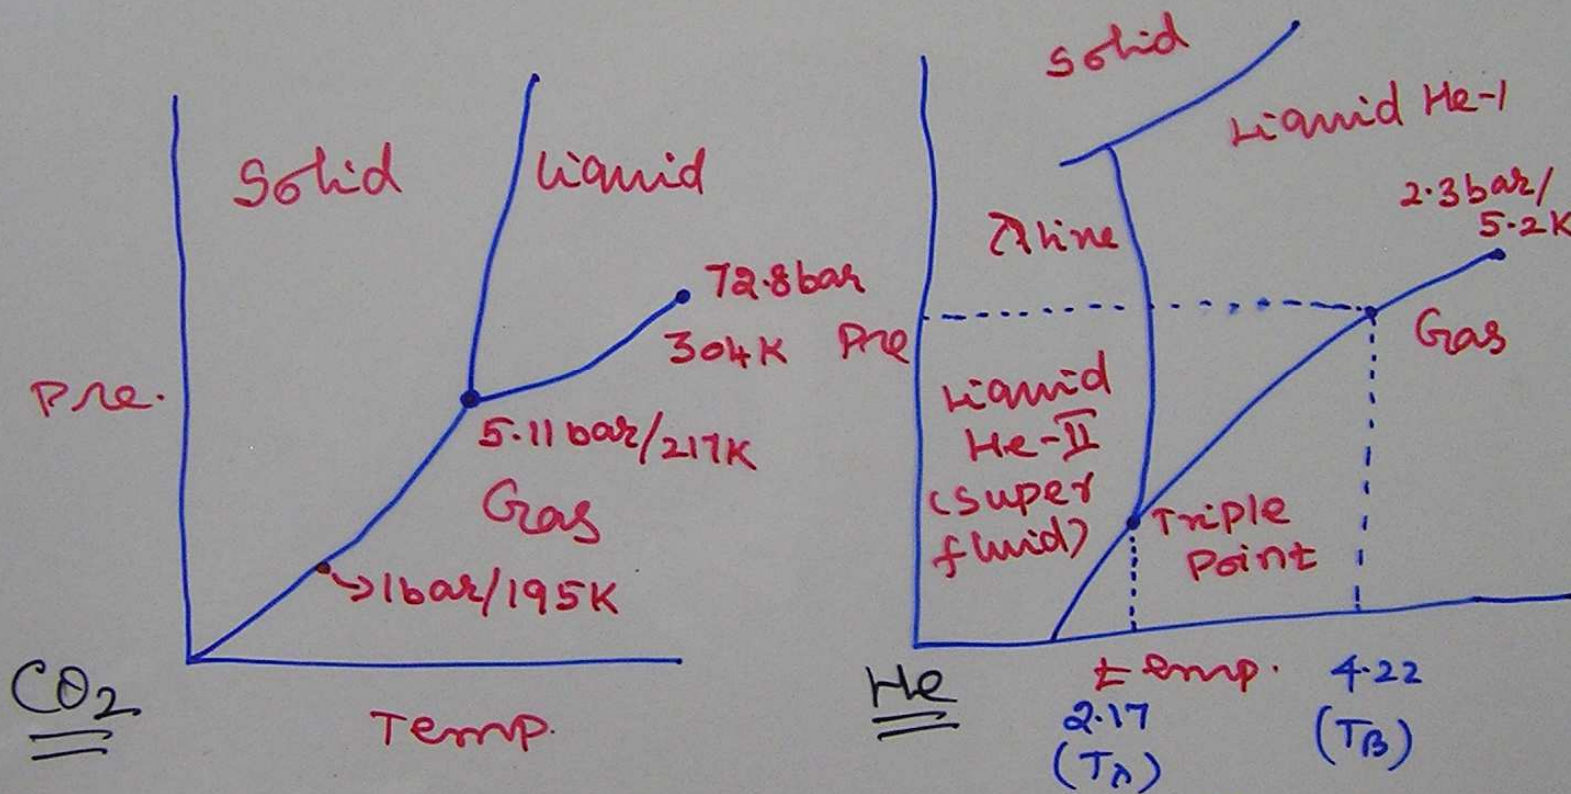 Solid
Liquid
72.8 bar
304K
Pre.
5.11 bar/217K
Gas
→1bar/195K
CO₂
Temp.
Solid
Liquid He-I
2.3 bar/
5.2K
λ line
Pre
Gas
Liquid
He-II
(Super
fluid)
Triple
Point
He
temp.
4.22
(TB)
2.17
(Tλ)